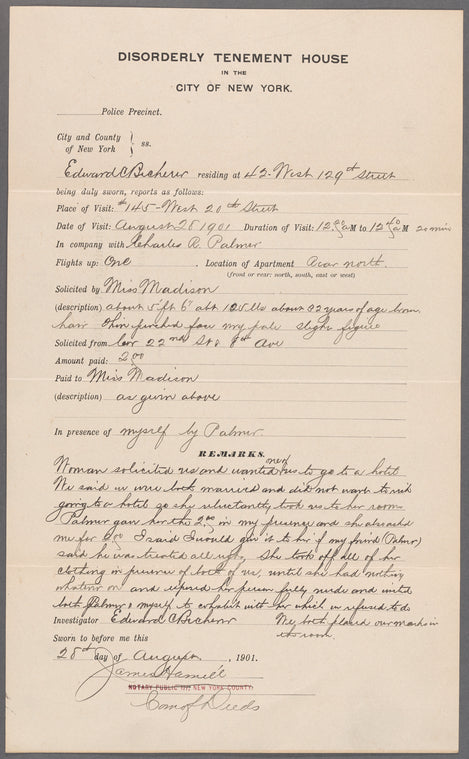 DISORDERLY TENEMENT HOUSE
IN THE
CITY OF NEW YORK.
Police Precinct.
City and County
of New York } ss.
Edward C Becherer residing at 43-West 129th Street
being duly sworn, reports as follows:
Place of Visit: #145-West 20th Street
Date of Visit: August 28 1901 Duration of Visit: 12 20/ a M to 12 40/ a M 20 min
In company with Charles R. Palmer
Flights up: One . Location of Apartment Rear north.
(front or rear: north, south, east or west)
Solicited by Miss Madison
(description) about 5 ft 6" abt 125 lbs about 32 years of age brown
hair thin pinched face very pale slight figure
Solicited from Cor 22nd St & 8th Ave
Amount paid: 2 00
Paid to Miss Madison
(description) as given above
In presence of myself by Palmer.
REMARKS.
Woman solicited us and wanted us to go to a hotel
We said we were both married and did not want to risk
going to a hotel so she reluctantly took us to her room
Palmer gave her the 2.00 in my presence and she also asked
me for 2 00 I said I would give it to her if my friend (Palmer)
said he was treated all right. She took off all of her
clothing in presence of both of us, until she had nothing
whatever on and exposed her person fully nude and invited
both Palmer & myself to cohabit with her which we refused to do
Investigator Edward C Becherer We both placed our marks in
the room.
Sworn to before me this
28th day of August , 1901.
James Hamill
NOTARY PUBLIC NEW YORK COUNTY.
Com of Deeds